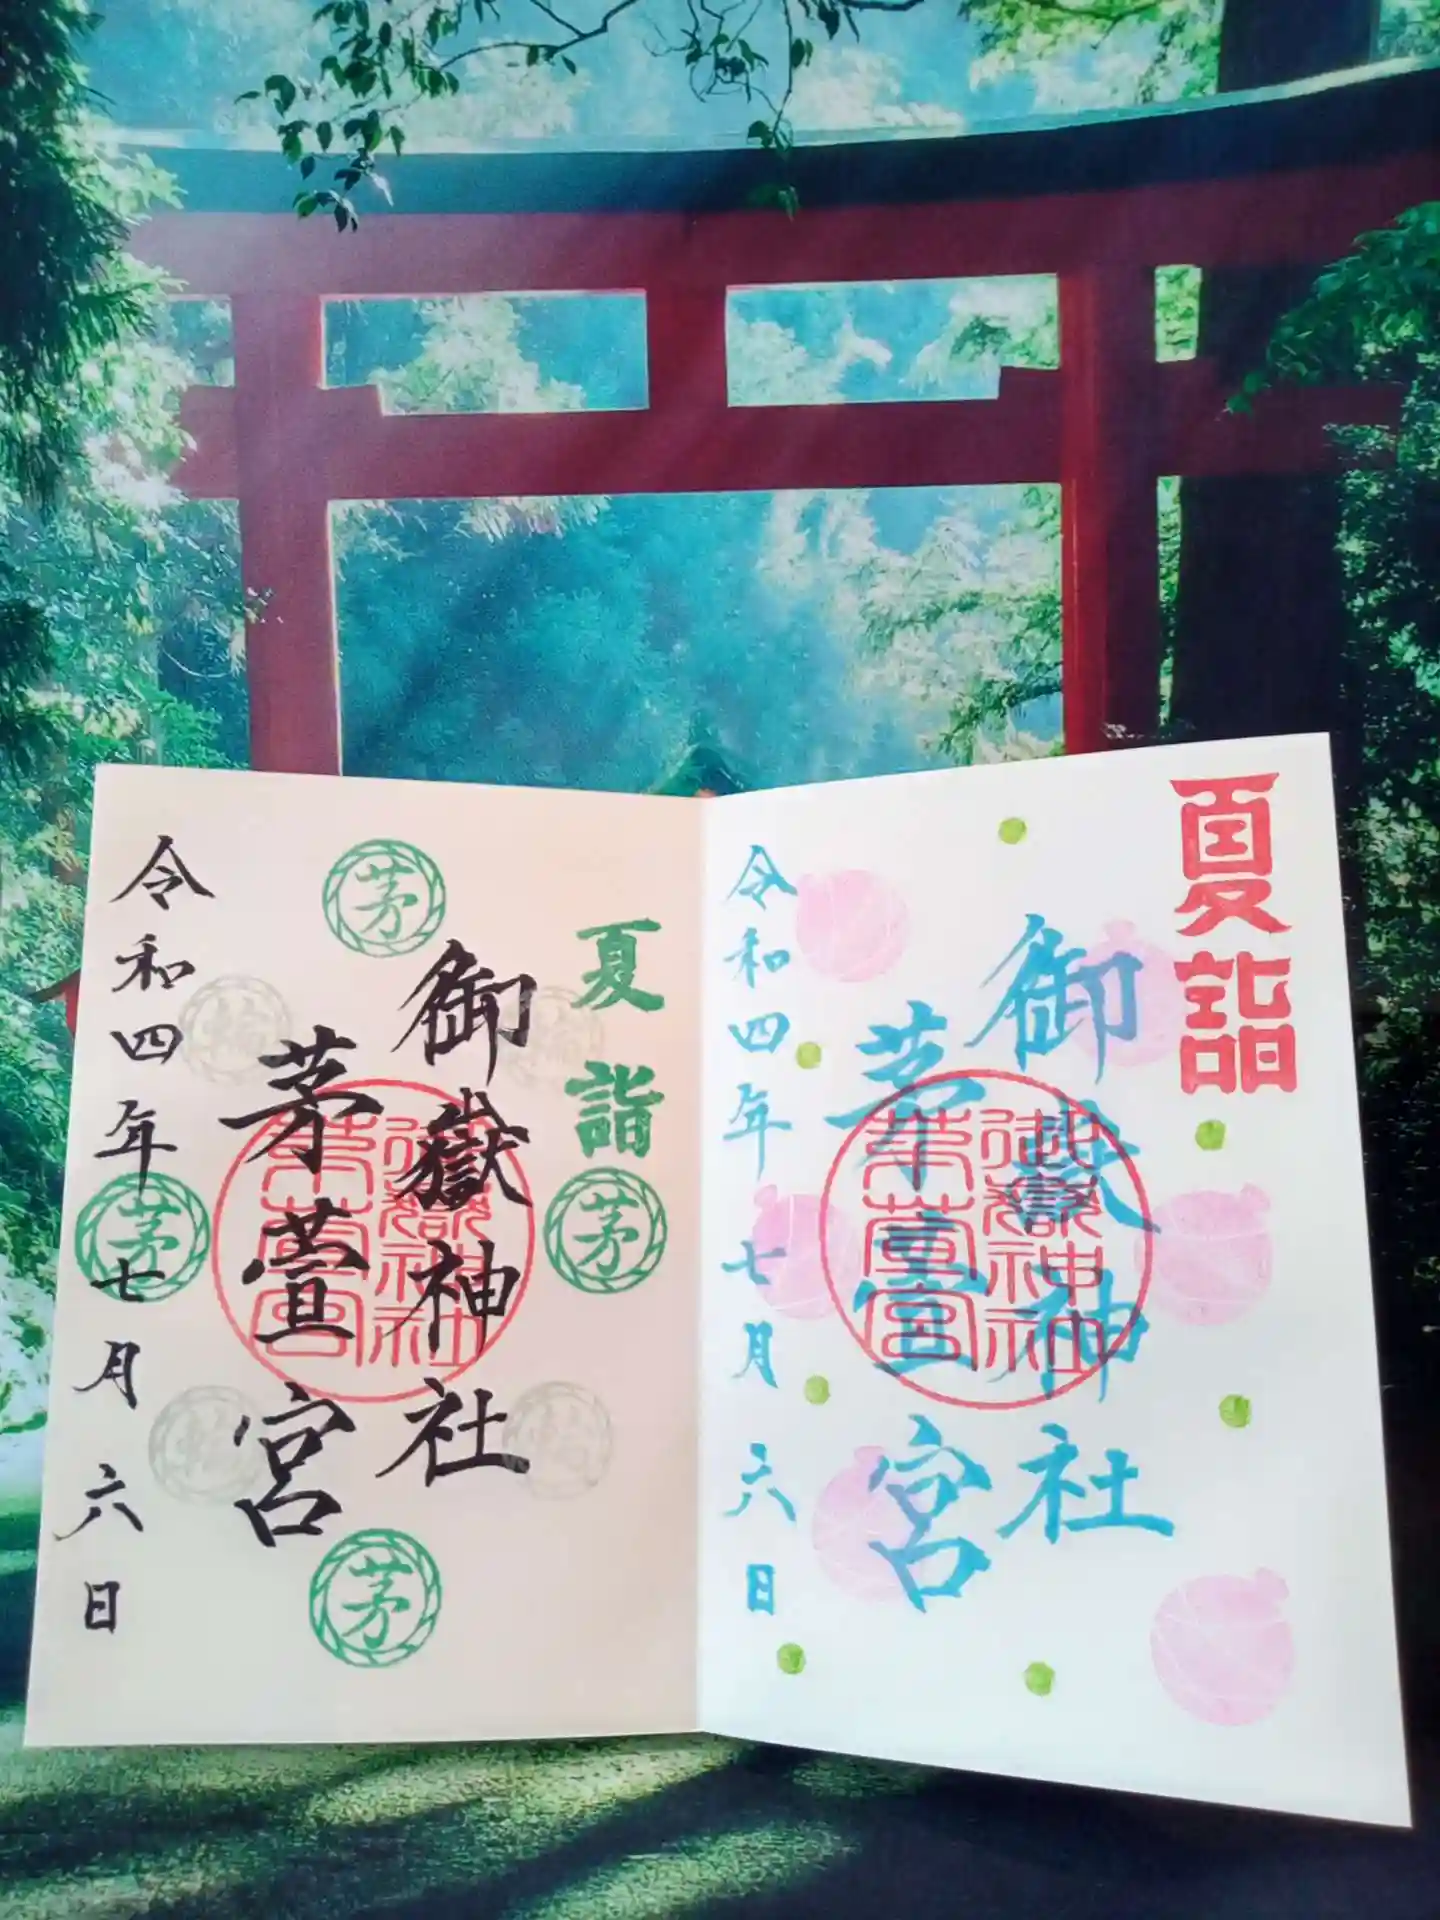 夏詣
御嶽神社
茅萱宮
令和四年七月六日
茅
茅
茅
茅
輪
輪
輪
輪
御嶽神社
茅萱宮
夏詣
御嶽神社
茅萱宮
令和四年七月六日
御嶽神社
茅萱宮